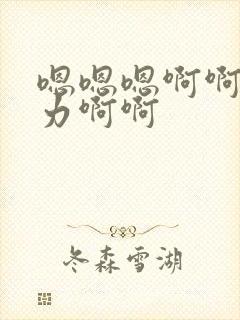 嗯嗯嗯啊啊
力啊啊
冬森雪湖